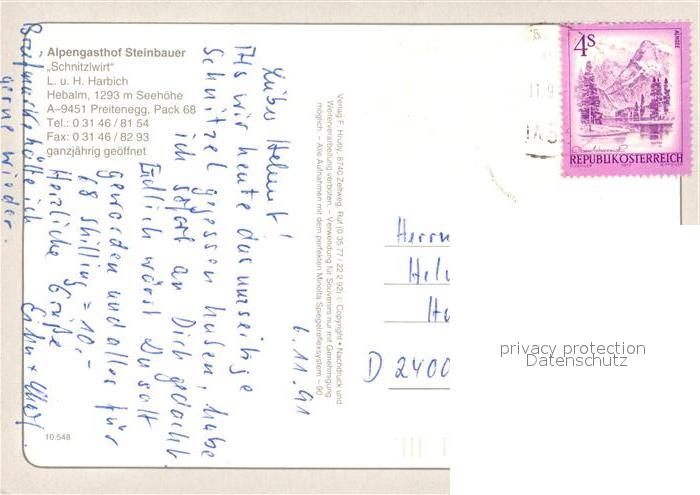 Alpengasthof Steinbauer
„Schnitzlwirt"
L. u. H. Harbich
Hebalm, 1293 m Seehöhe
A–9451 Preitenegg, Pack 68
Tel.: 0 31 46 / 81 54
Fax: 0 31 46 / 82 93
ganzjährig geöffnet
6.11.91
Lieber Helmut!
Als wir heute das umseitige
Schnitzel gegessen haben, habe
ich sofort an Dich gedacht.
Endlich wärst Du satt
geworden und alles für
78 shilling = 10,-
Herzliche Grüße
Briefmarke hätte ich
gerne wieder.
10.548
Verlag F. Hruby, 8740 Zeltweg, Ruf (0 35 77 / 22 2 92) © Copyright • Nachdruck und
Weiterverarbeitung verboten. – Verwendung für Souvenirs nur mit Genehmigung
möglich. – Alle Aufnahmen mit dem perfekten Minolta Spiegelreflexsystem – 90
4S
ALMSEE
REPUBLIK ÖSTERREICH
Herrn
D 2400
privacy protection
Datenschutz